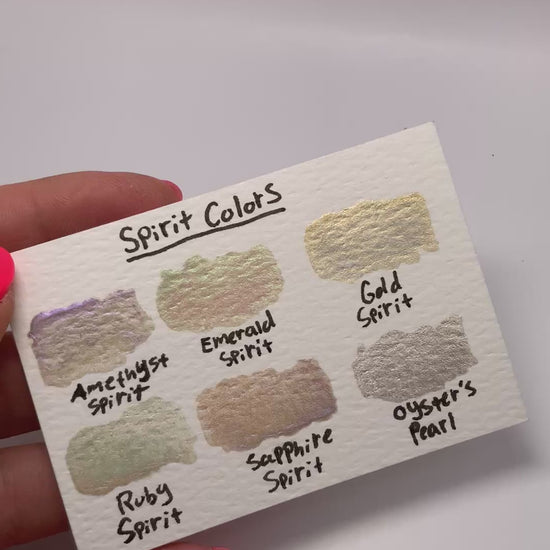 Spirit Colors
Amethyst
Spirit
Emerald
Spirit
Gold
Spirit
Ruby
Spirit
Sapphire
Spirit
Oyster's
Pearl